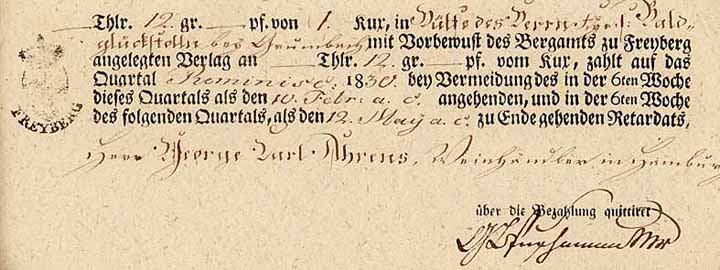 Thlr. 12 gr. — pf. von 1. Kux, in Hülfe des Herrn
glückstolln bey Grumbach mit Vorbewust des Bergamts zu Freyberg
angelegten Verlag an — Thlr. 12 gr. — pf. vom Kux, zahlt auf das
Quartal Reminisc: 1830. bey Vermeidung des in der 6ten Woche
dieses Quartals als den 10. Febr: a. c. angehenden, und in der 6ten Woche
des folgenden Quartals, als den 12. May a. c. zu Ende gehenden Retardats,
FREYBERG
Herr George Carl Ahrens, Weinhändler in Hamburg
über die Bezahlung quittiret